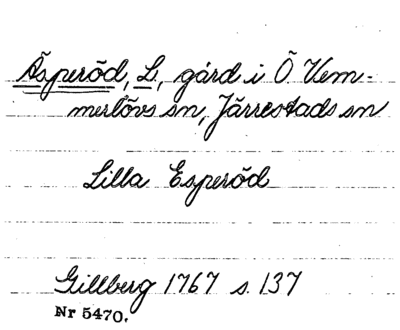 Äsperöd, L., gård i Ö. Vem-
merlövs sn, Järrestads sn
Lilla Esperöd
Gillberg 1767 s. 137
Nr 5470.